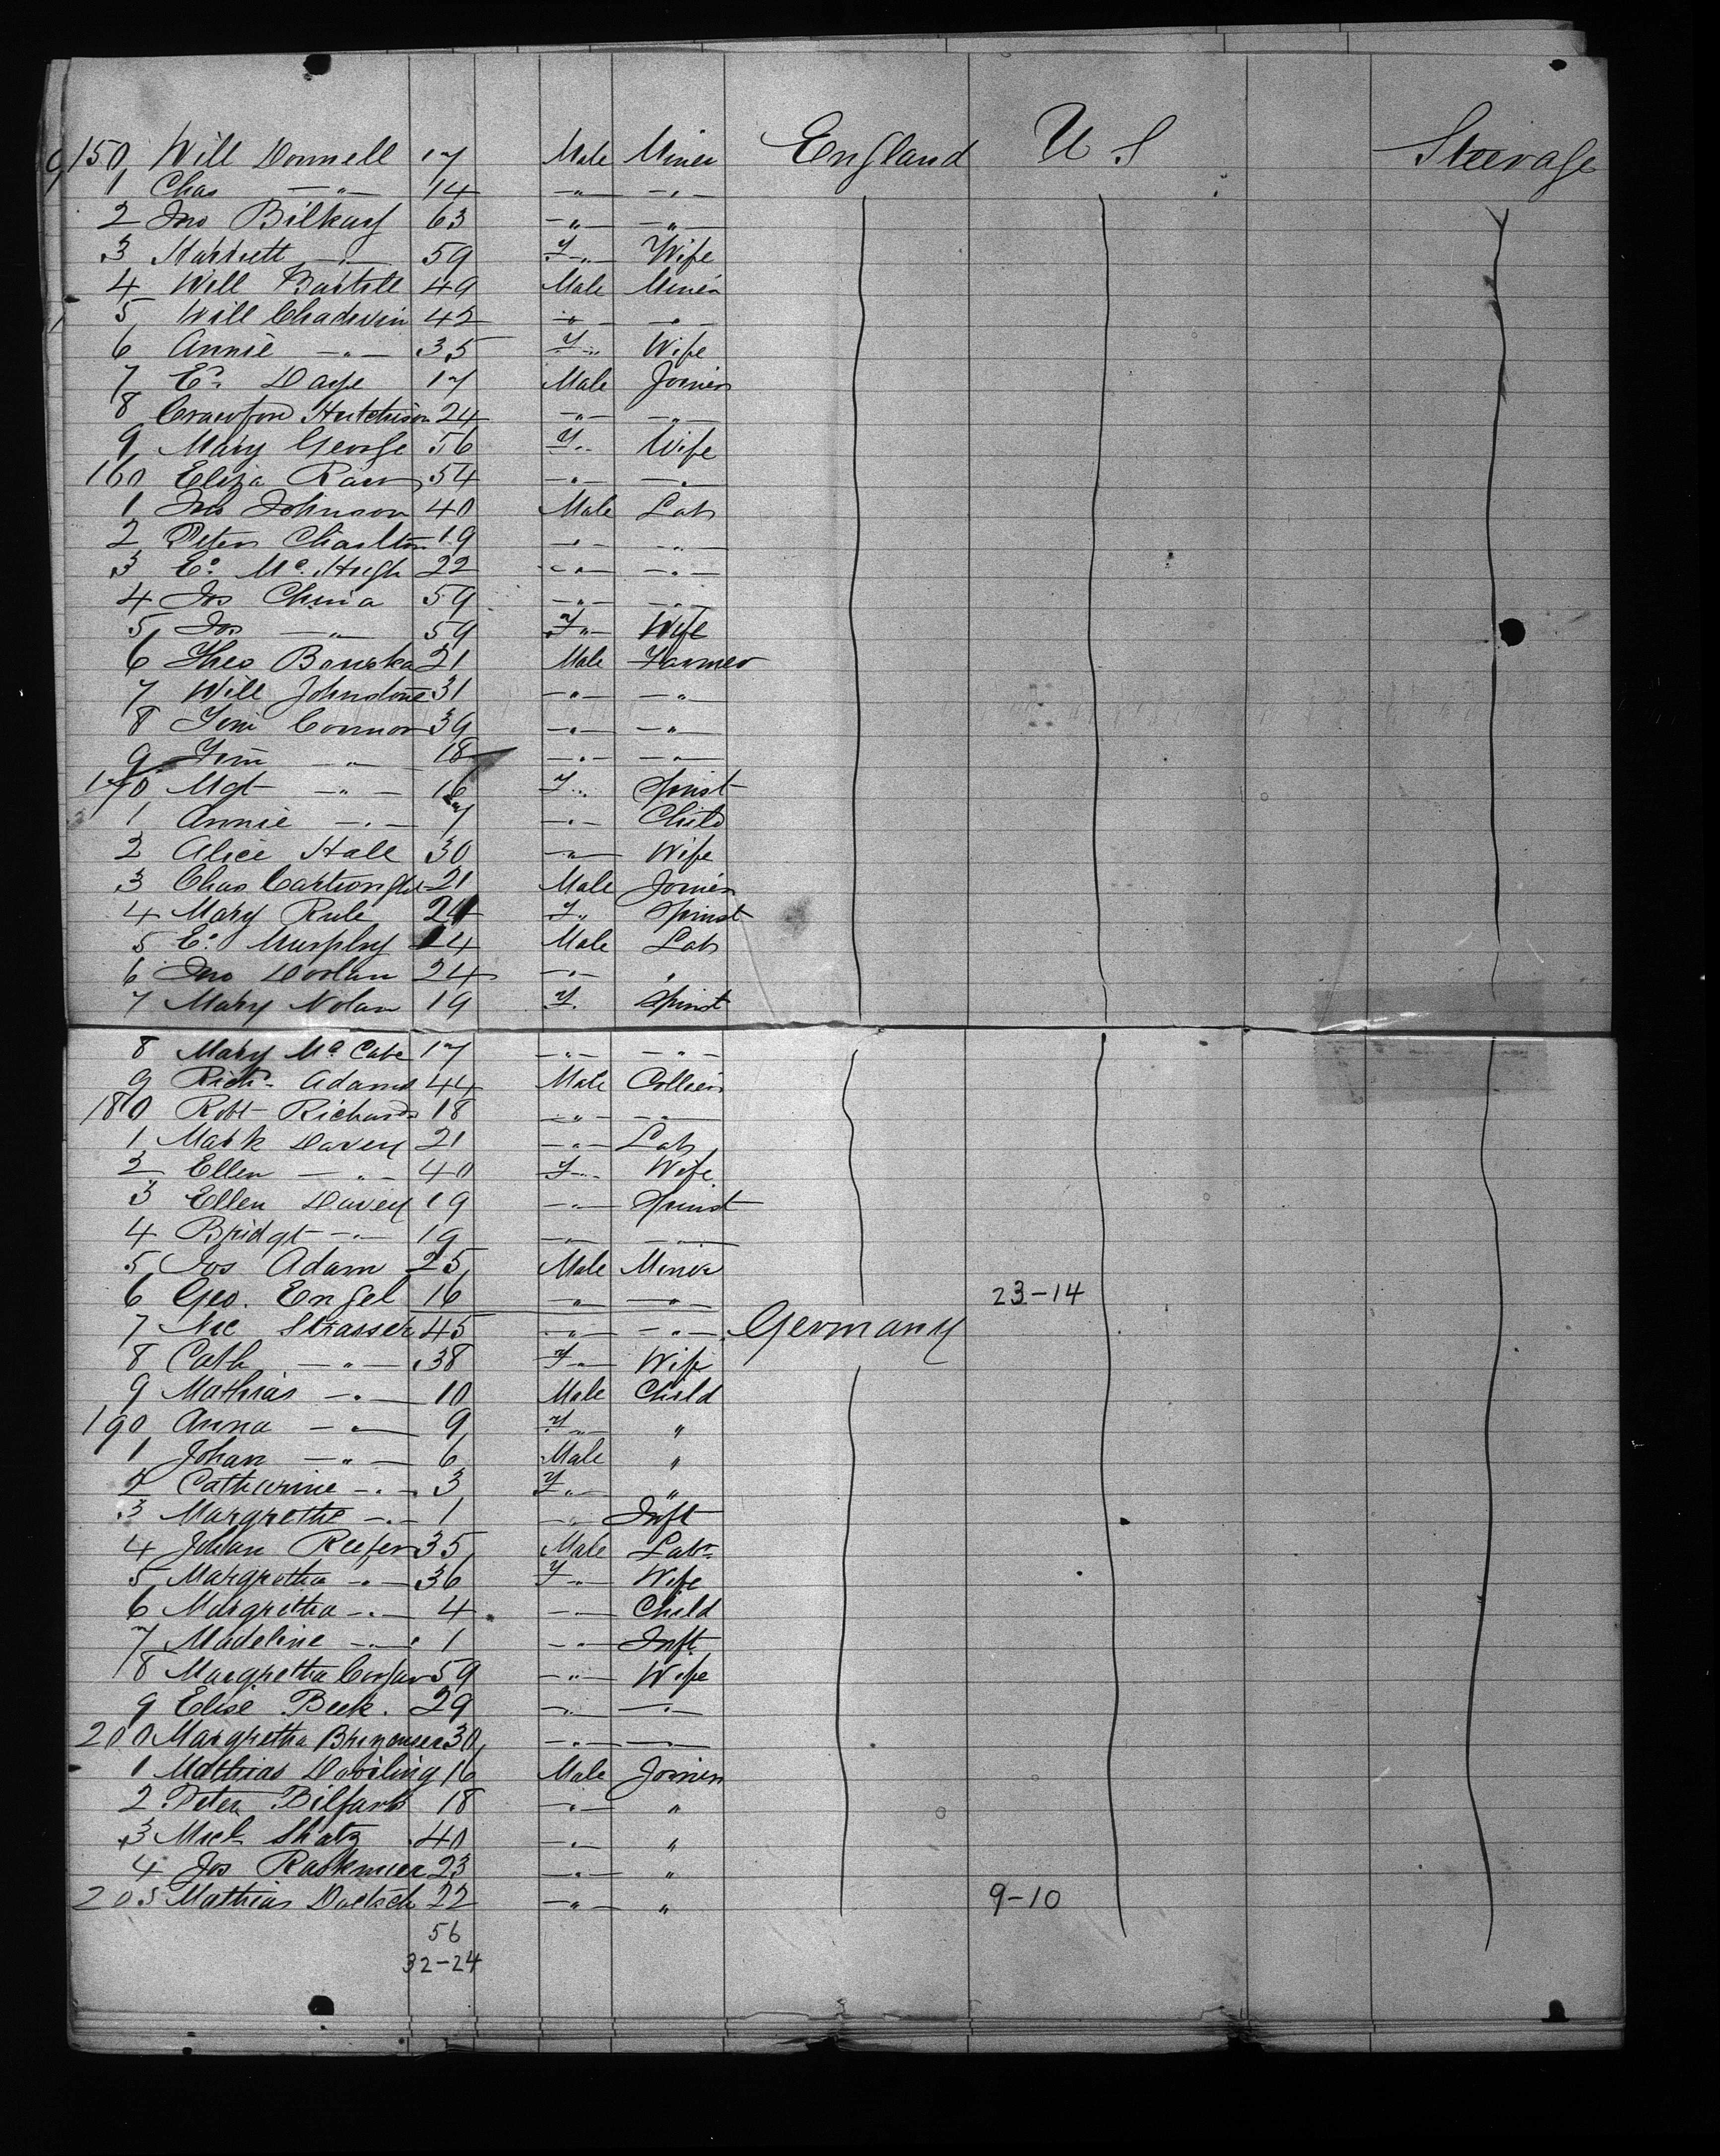 150 Will Donnell 17 Male Miner England U S Steerage
1 Chas —"— 14 —"— —"—
2 Jno Bilkay 63 —"— —"—
3 Harriett —"— 59 F —"— Wife
4 Will 49 Male Miner
5 Will Chadwin 42 —"— —"—
6 Annie —"— 35 F —"— Wife
7 Ed. Daye 17 Male Joiner
8 Crawford Hutchison 24 —"— —"—
9 Mary George 56 F " Wife
160 Eliza 54 —"— —"—
1 Jno Johnson 40 Male Lab
2 Peter Charlton 19 —"— —"—
3 Ed. Mc. Hugh 22 —"— —"—
4 Jos 59 —"— —"—
5 Jos —"— 59 F —"— Wife
6 Theo 21 Male Farmer
7 Will Johnstone 31 —"— —"—
8 Tim Connor 39 —"— —"—
9 Tim —"— 18 —"— —"—
170 Mgt —"— 16 F " Spinst
1 Annie —"— 7 —"— Child
2 Alice Hall 30 —"— Wife
3 Chas 21 Male Joiner
4 Mary Rule F " Spinst
5 Ed. Murphy 24 Male Lab
6 Jno 24 —"— "
7 Mary Nolan 19 F. Spinst
8 Mary Mc Cabe 17 —"— —"—
9 Richd. Adams 44 Male Collier
180 Robt Richards 18 —"— —"—
1 Mark Davey 21 —"— Lab
2 Ellen —"— 40 F —"— Wife
3 Ellen Davey 19 —"— Spinst
4 Bridgt —"— 19 —"— —"—
5 Jos Adam 25 Male Miner
6 Geo. Engel 16 —"— —"— 23-14
7 Nic Strasser 45 —"— —"— Germany
8 Cath —"— 38 F —"— Wife
9 Mathias —"— 10 Male Child
190 Anna —"— 9 F —"— "
1 Johan —"— 6 Male "
2 Catharine —"— 3 F —"— "
3 Margrethe —"— 1 —"— Inft
4 Johan Reefer 35 Male Labr
5 Margretha —"— 36 F —"— Wife
6 Margretha —"— 4 —"— Child
7 Madeline —"— 1 —"— Inft
8 Margretha 59 —"— Wife
9 Elise Beck. 29 —"— —"—
200 Margretha 30 —"— —"—
1 Mathias 16 Male Joiner
2 Peter 18 —"— "
3 Mich Shatz 40 —"— "
4 Jos 23 —"— "
205 Mathias 22 —"— " 9-10
56
32-24